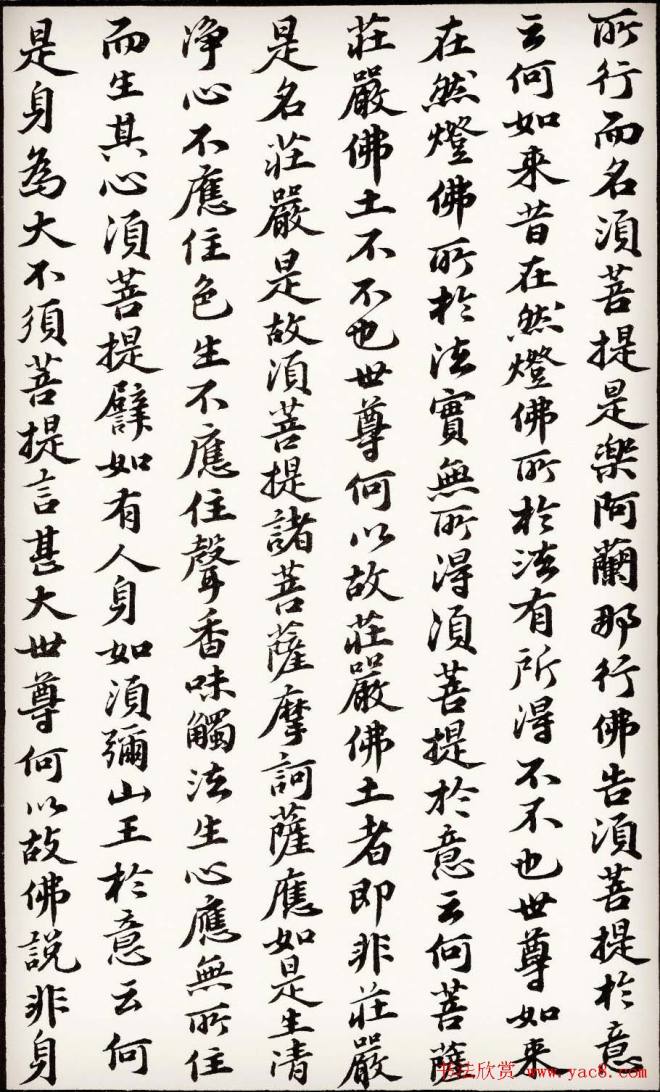 所行而名須菩提是樂阿蘭那行佛告須菩提於意
云何如来昔在然燈佛所於法有所得不不也世尊如来
在然燈佛所於法實無所得須菩提於意云何菩薩
莊嚴佛土不不也世尊何以故莊嚴佛土者即非莊嚴
是名莊嚴是故須菩提諸菩薩摩訶薩應如是生清
淨心不應住色生不應住聲香味觸法生心應無所住
而生其心須菩提譬如有人身如須彌山王於意云何
是身為大不須菩提言甚大世尊何以故佛說非身
书法欣赏 www.yac8.com